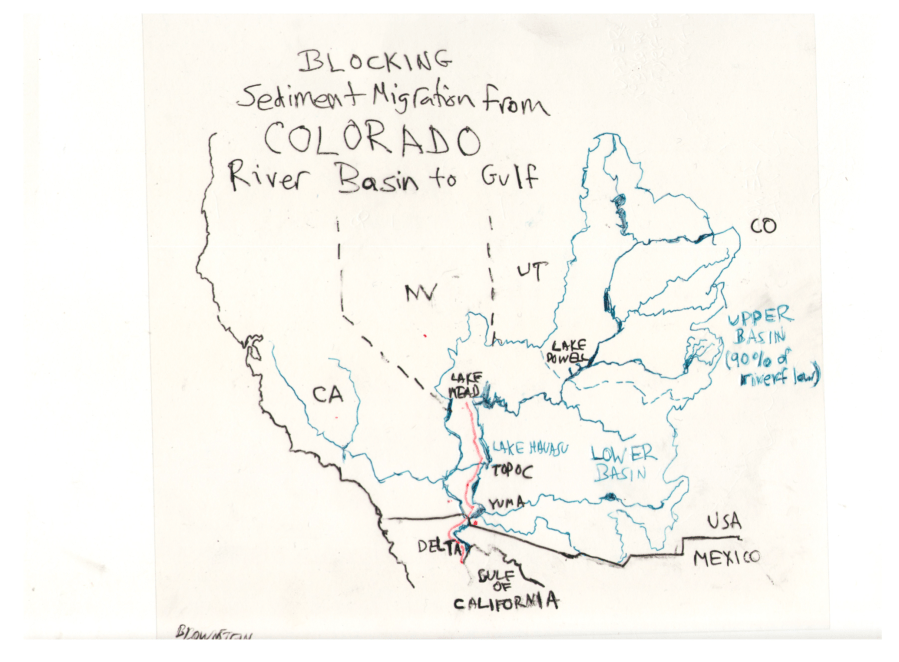 BLOCKING
Sediment Migration from
COLORADO
River Basin to Gulf
CO
UT
NV
UPPER
BASIN
(90% of
riverflow)
LAKE
POWELL
LAKE
MEAD
CA
LAKE HAVASU
LOWER
BASIN
TOPOC
YUMA
USA
DELTA
MEXICO
GULF
OF
CALIFORNIA